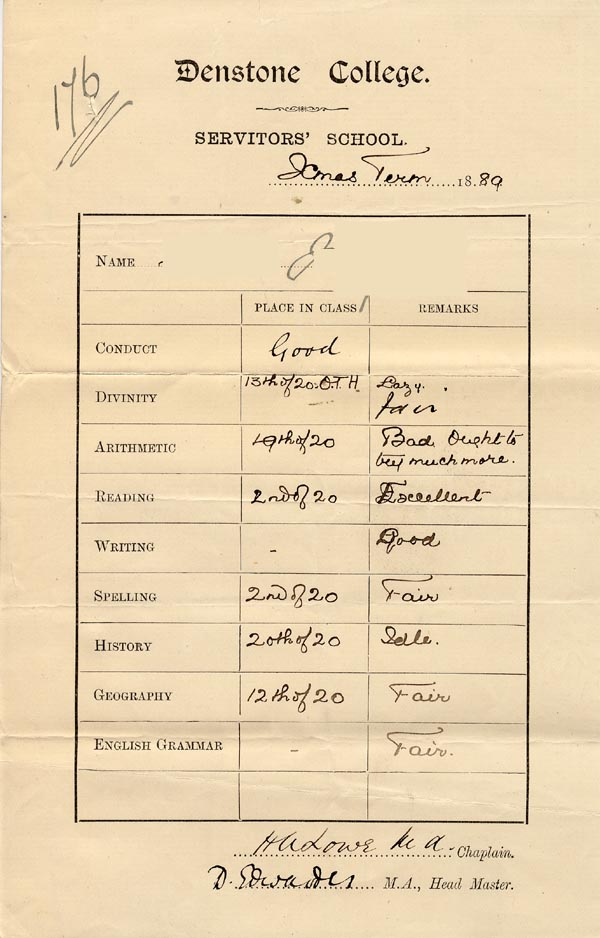 176
Denstone College.
SERVITORS' SCHOOL.
Xmas Term 1889
NAME
PLACE IN CLASS REMARKS
CONDUCT Good
DIVINITY 13th of 20. O.T.H. Lazy.
fair
ARITHMETIC 19th of 20 Bad. Ought to
try much more.
READING 2nd of 20 Excellent
WRITING - Good
SPELLING 2nd of 20 Fair
HISTORY 20th of 20 Idle.
GEOGRAPHY 12th of 20 Fair
ENGLISH GRAMMAR - Fair.
Lowe M.A. Chaplain.
D. Edwardes M.A., Head Master.